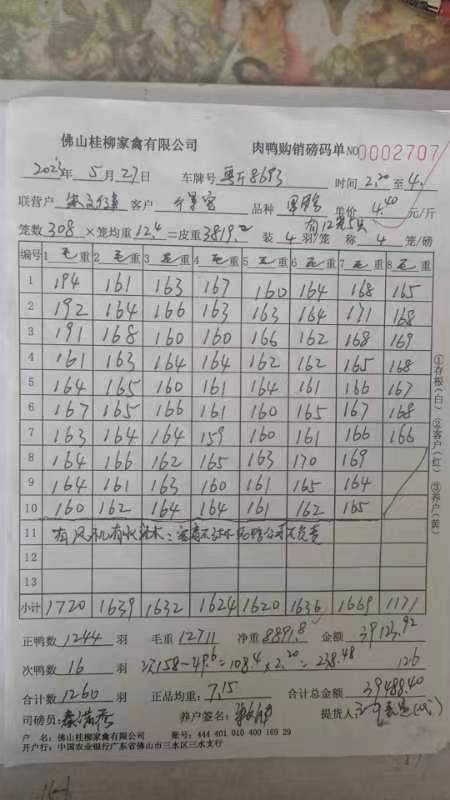 佛山桂柳家禽有限公司 肉鸭购销磅码单 NO 0002707
2023年 5月27日 车牌号 8693 时间 2.20 至 4.
联营户 客户 品种 单价 4.40 元/斤
有12笼5只
笼数 308 ×笼均重 12.4 =皮重 3819.2 装 4 羽/笼 称 4 笼/磅
编号 1 毛重 2 毛重 3 毛重 4 毛重 5 毛重 6 毛重 7 毛重 8 毛重
1 194 161 163 167 160 164 168 165
2 192 164 166 163 163 164 171 168
3 191 168 160 160 166 162 168 169
4 161 163 164 164 162 162 165 168
5 164 165 160 161 164 161 166 167
6 167 165 166 161 160 165 167 168
7 163 164 164 159 160 161 166 166
8 164 166 162 165 163 170 169
9 164 161 163 160 161 165 164
10 160 162 164 164 161 162 165
11 有风机有水
12
13
小计 1720 1639 1632 1624 1620 1636 1669 1171
正鸭数 1244 羽 毛重 12711 净重 8891.8 金额 39123.92
次鸭数 16 羽 次158-49.6=108.4×2.20=238.48 126
合计数 1260 羽 正品均重: 7.15 合计总金额 39488.40
司磅员: 养户签名: 提货人:
户 名: 佛山桂柳家禽有限公司 账号: 444 401 010 400 169 29
开户行: 中国农业银行广东省佛山市三水区三水支行
①存根(白) ②客户(红) ③养户(黄)